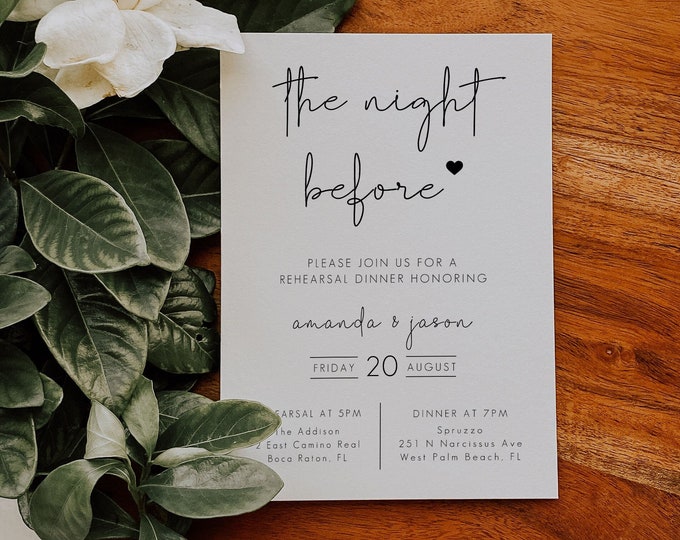 the night
before
PLEASE JOIN US FOR A
REHEARSAL DINNER HONORING
amanda & jason
FRIDAY 20 AUGUST
AT 5PM
The Addison
East Camino Real
Boca Raton, FL
DINNER AT 7PM
Spruzzo
251 N Narcissus Ave
West Palm Beach, FL